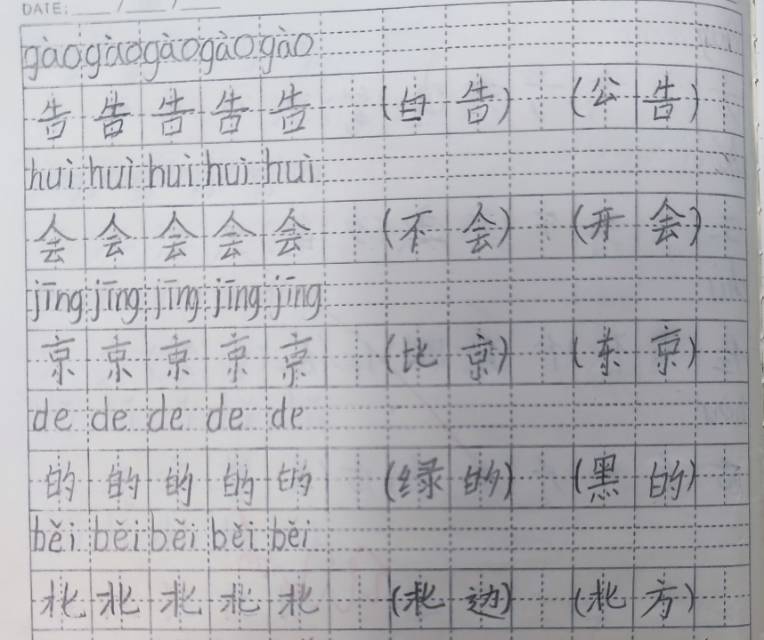 DATE: / /
gàogàogàogàogào
告告告告告 (白告) (公告)
huìhuìhuìhuìhuì
会会会会会 (不会) (开会)
jīngjīngjīngjīngjīng
京京京京京 (比京) (东京)
de de de de de
的的的的的 (绿的) (黑的)
běi běi běi běi běi
北北北北北 (北边) (北方)